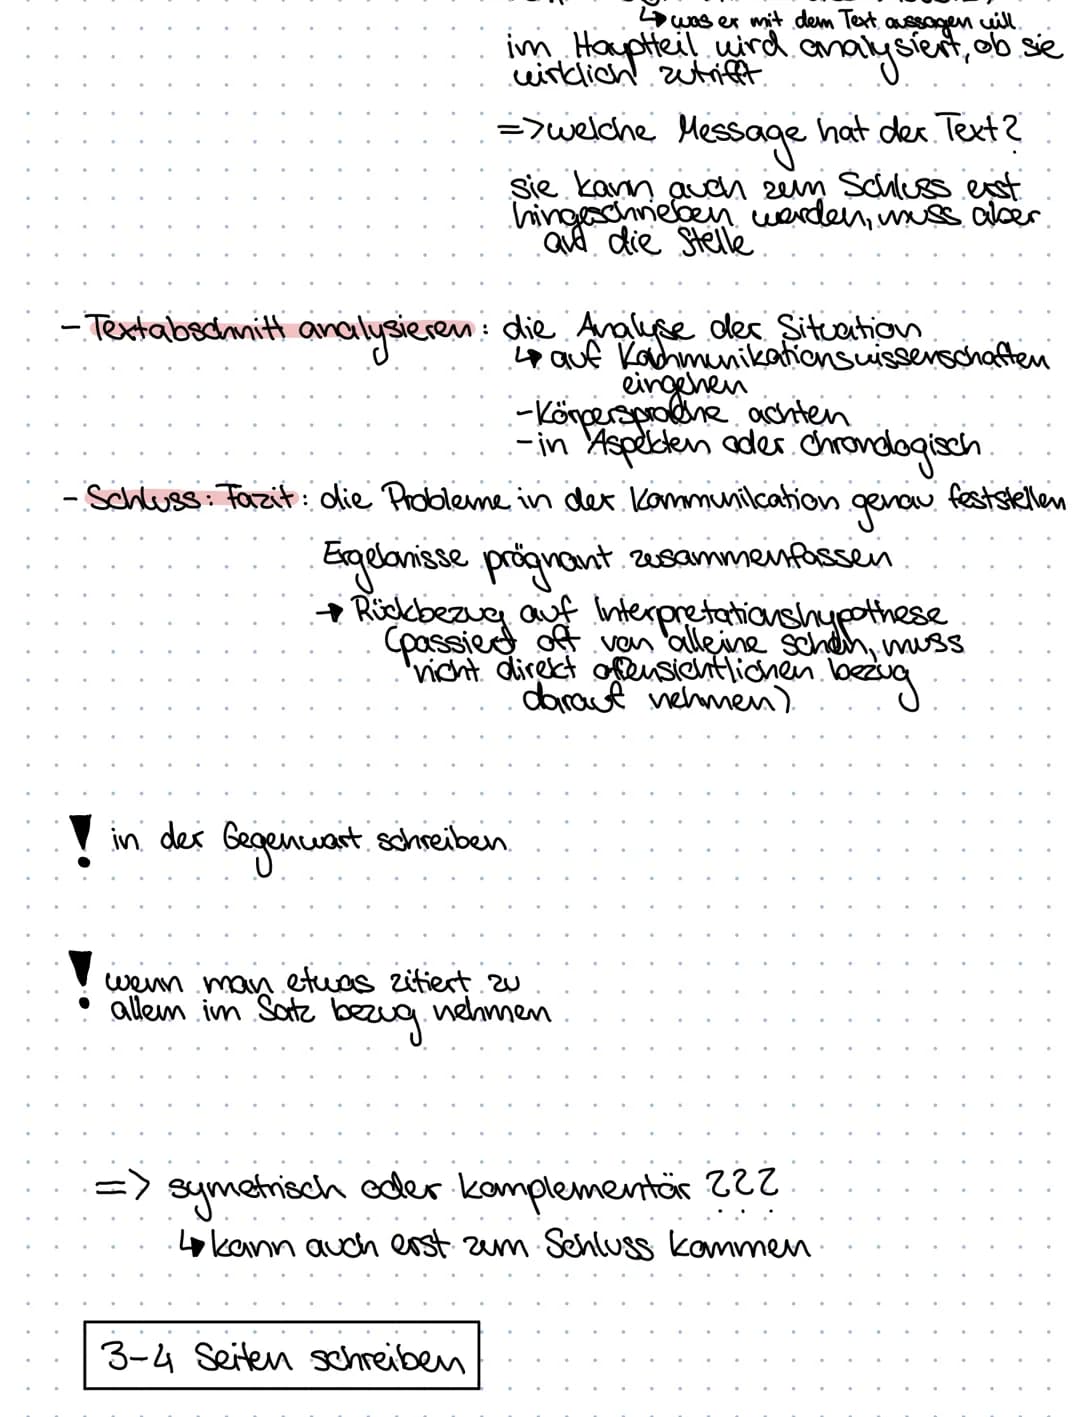 ↳ was er mit dem Text aussagen will
im Hauptteil wird analysiert, ob sie
wirklich zutrifft
=> welche Message hat der Text?
sie kann auch zum Schluss erst
hingeschrieben werden, muss aber
auf die Stelle
- Textabschnitt analysieren: die Analyse der Situation
↳ auf Kommunikationswissenschaften
eingehen
- Körpersprache achten
- in Aspekten oder chronologisch
- Schluss: Fazit: die Probleme in der Kommunikation genau feststellen
Ergebnisse prägnant zusammenfassen
→ Rückbezug auf Interpretationshypothese
(passiert oft von alleine schon, muss
nicht direkt offensichtlichen bezug
darauf nehmen)
! in der Gegenwart schreiben
! wenn man etwas zitiert zu
allem im Satz bezug nehmen
=> symetrisch oder komplementär ???
↳ kann auch erst zum Schluss kommen
3-4 Seiten schreiben